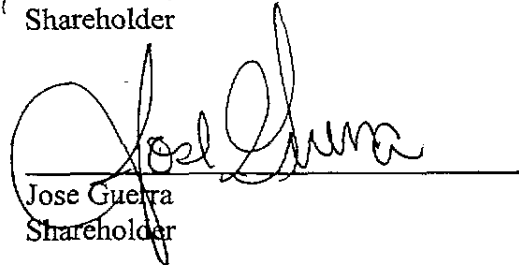 Shareholder
Jose Guerra
Jose Guerra
Shareholder